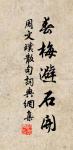 春梅避石開
周文璞散句詞典網集